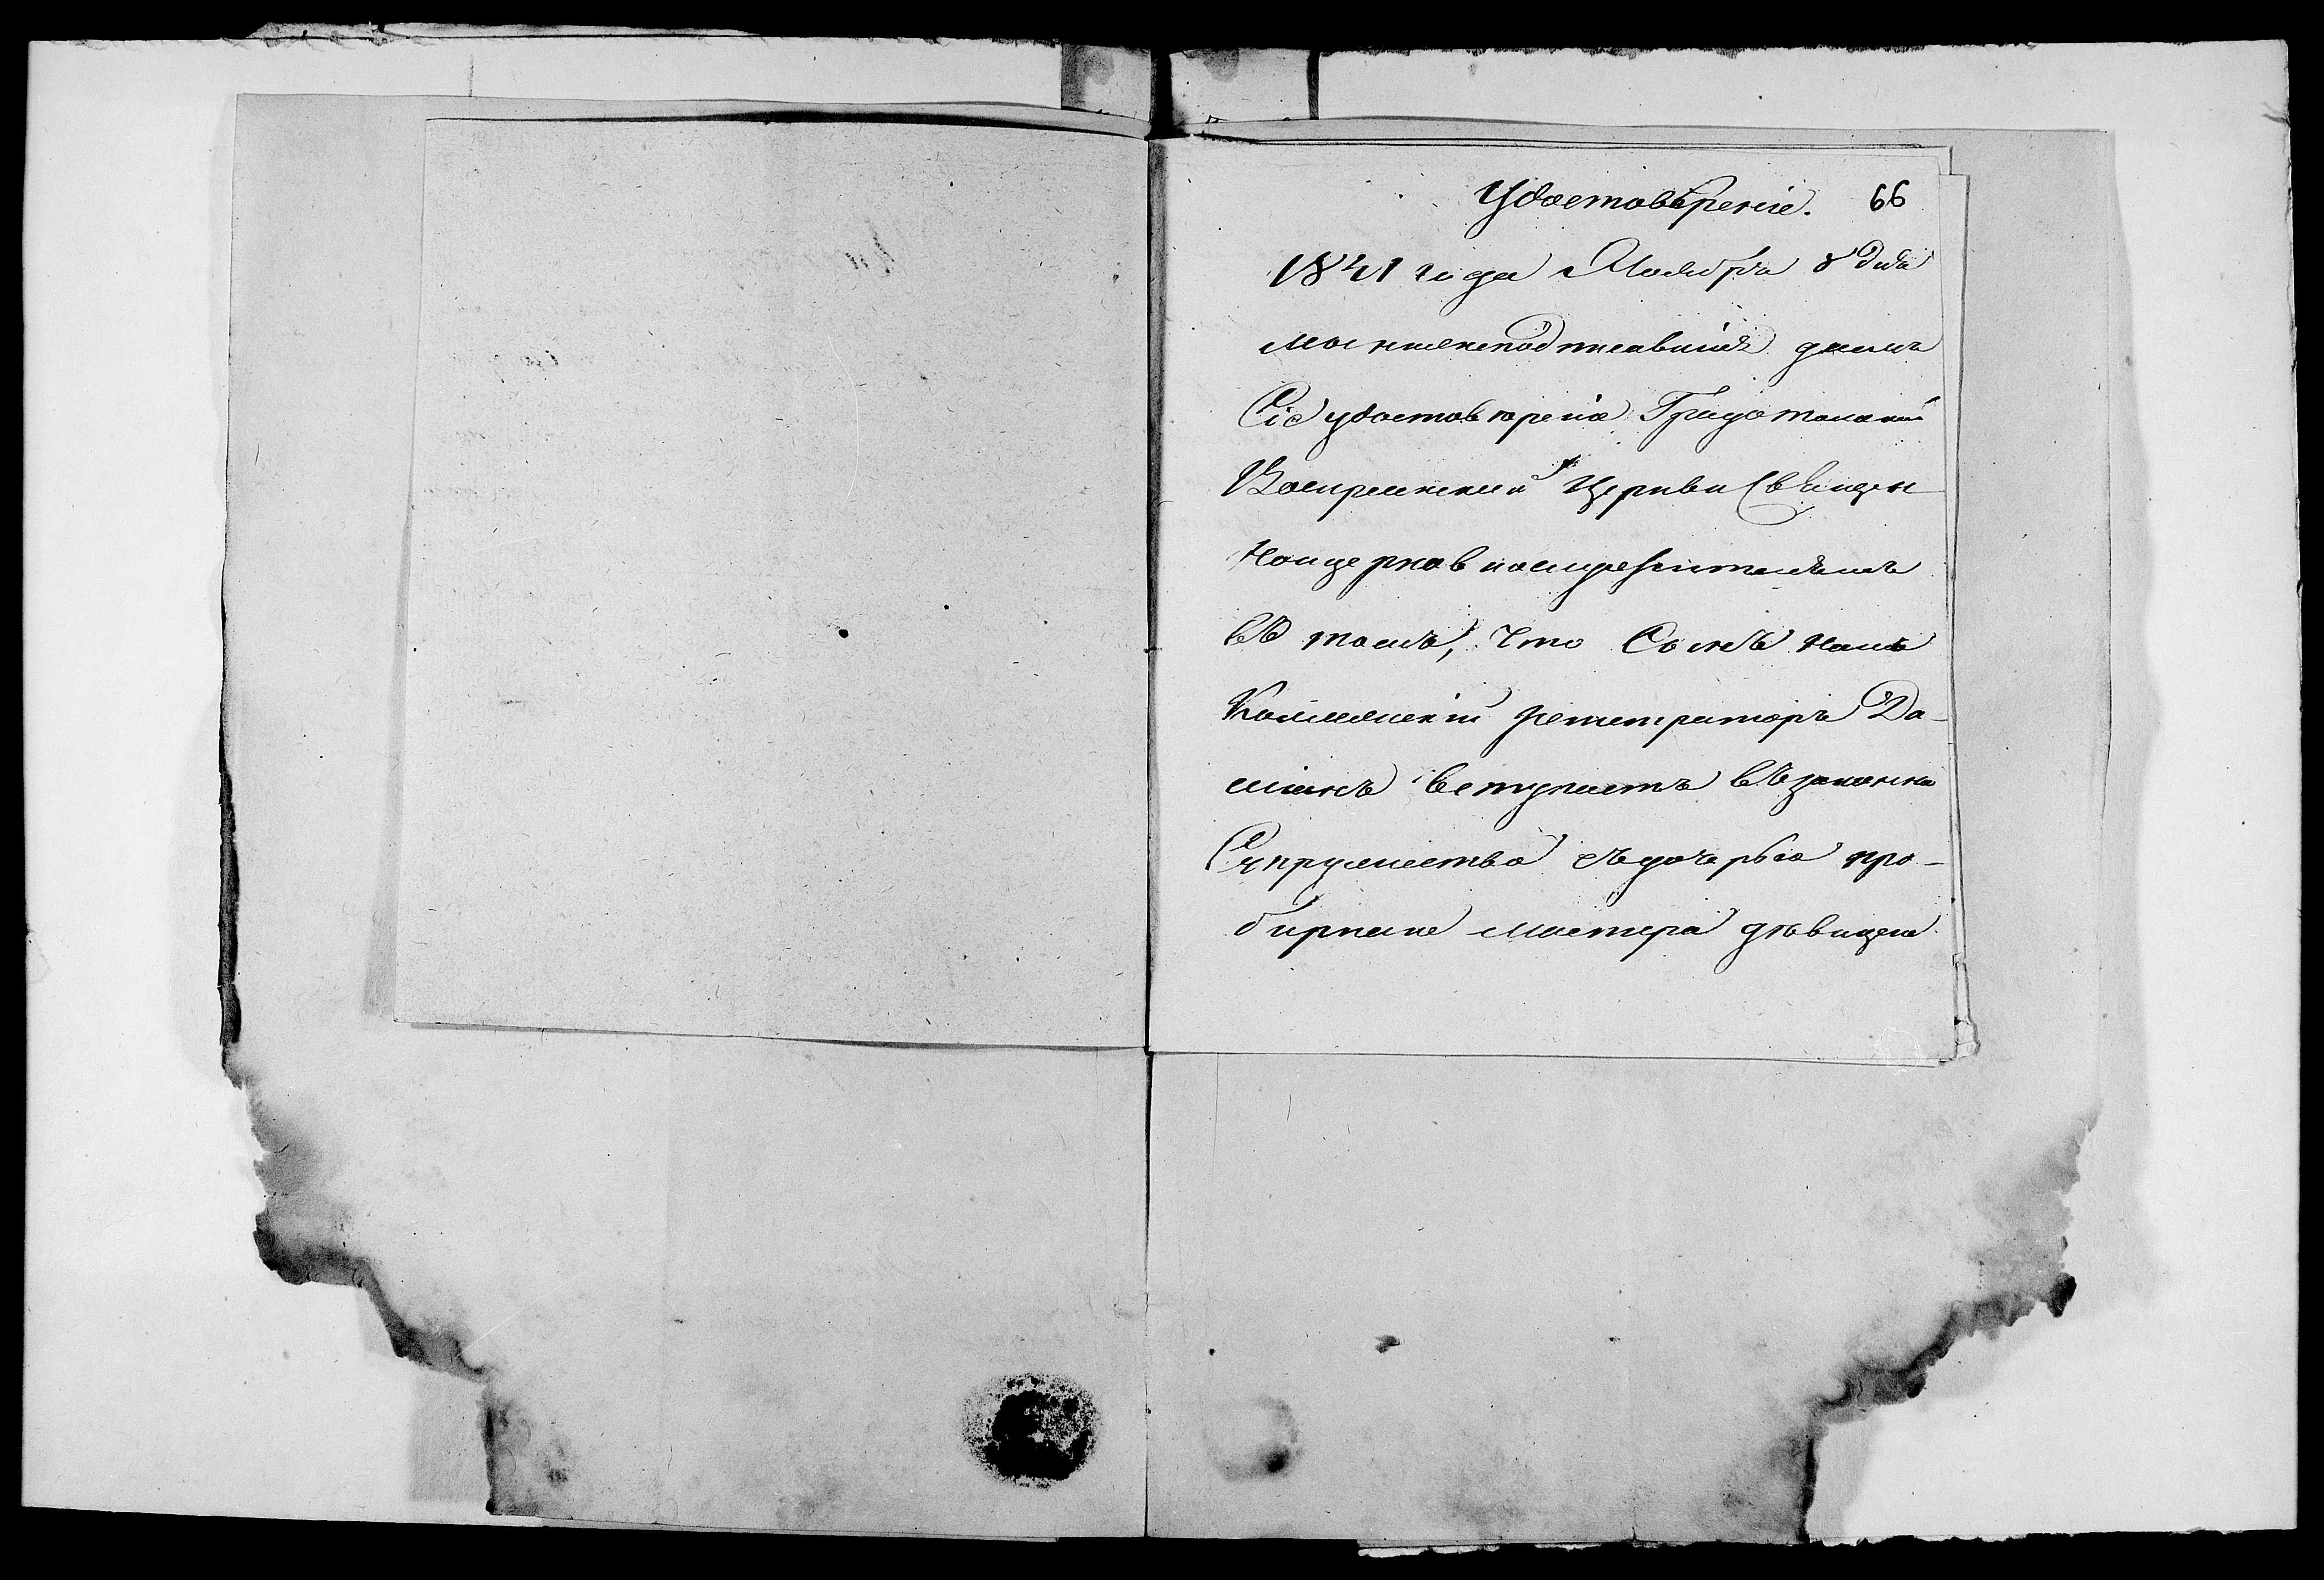 Удостовѣреніе. 66
1841 года Ноября 8 дня
мы нижеподписавшіи дали
Сіе удостовѣреніе Градотомской
Воскресенской Церкви Священ
ноцерковнослужителямъ
въ томъ, что Сынъ нашъ
Коллежскій регистраторъ Да-
міанъ вступаетъ въ законно
Супружество съ дочерью про-
бирнаго мастера дѣвицею